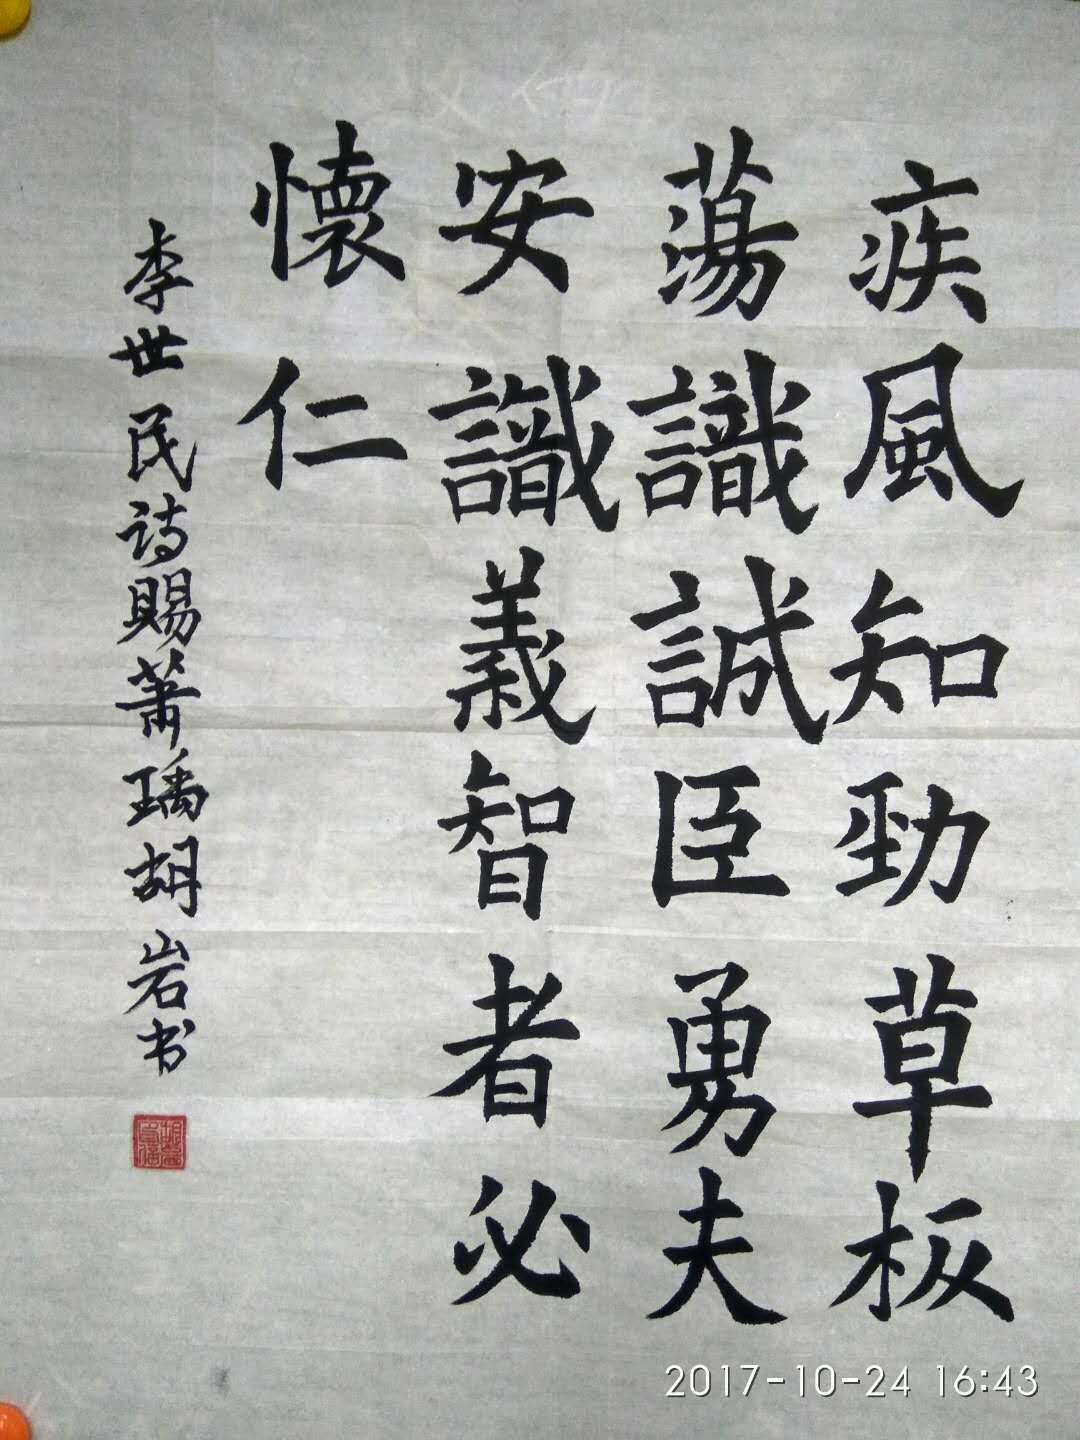 疾風知勁草板
蕩識誠臣勇夫
安識義智者必
懷仁
李世民诗賜萧瑀胡岩书
2017-10-24 16:43